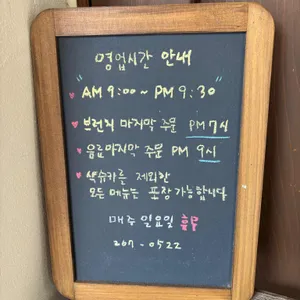 영업시간 안내
" AM 9:00 ~ PM 9:30 "
♥ 브런치 마지막 주문 PM 7시
♥ 음료마지막 주문 PM 9시
♥ 색슈카를 제외한
모든 메뉴는 포장가능합니다
매주 일요일 휴무
267-0522